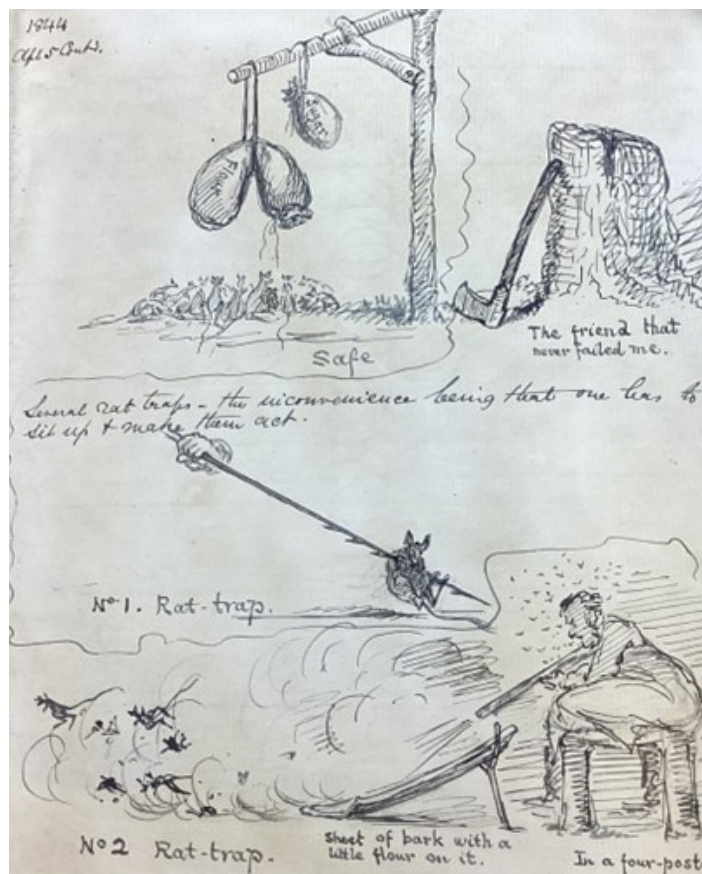 1844
Apl 5 Contd.
Flour
Sugar
Safe
The friend that
never failed me.
Several rat traps - the inconvenience being that one has to
sit up & make them act.
No 1. Rat-trap.
No 2 Rat-trap.
Sheet of bark with a
little flour on it.
In a four-post